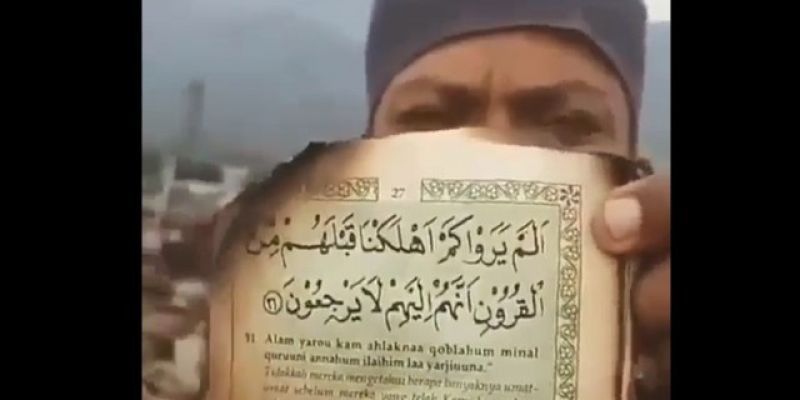 27
اَلَمْ يَرَوْا كَمْ اَهْلَكْنَا قَبْلَهُمْ مِنَ
الْقُرُوْنِ اَنَّهُمْ اِلَيْهِمْ لَا يَرْجِعُوْنَ ﴿٣١﴾
31 Alam yarou kam ahlaknaa qoblahum minal
quruuni annahum ilaihim laa yarjiuuna."
Tidakkah mereka mengetahui berapa banyaknya umat-
umat sebelum mereka yang telah Kami